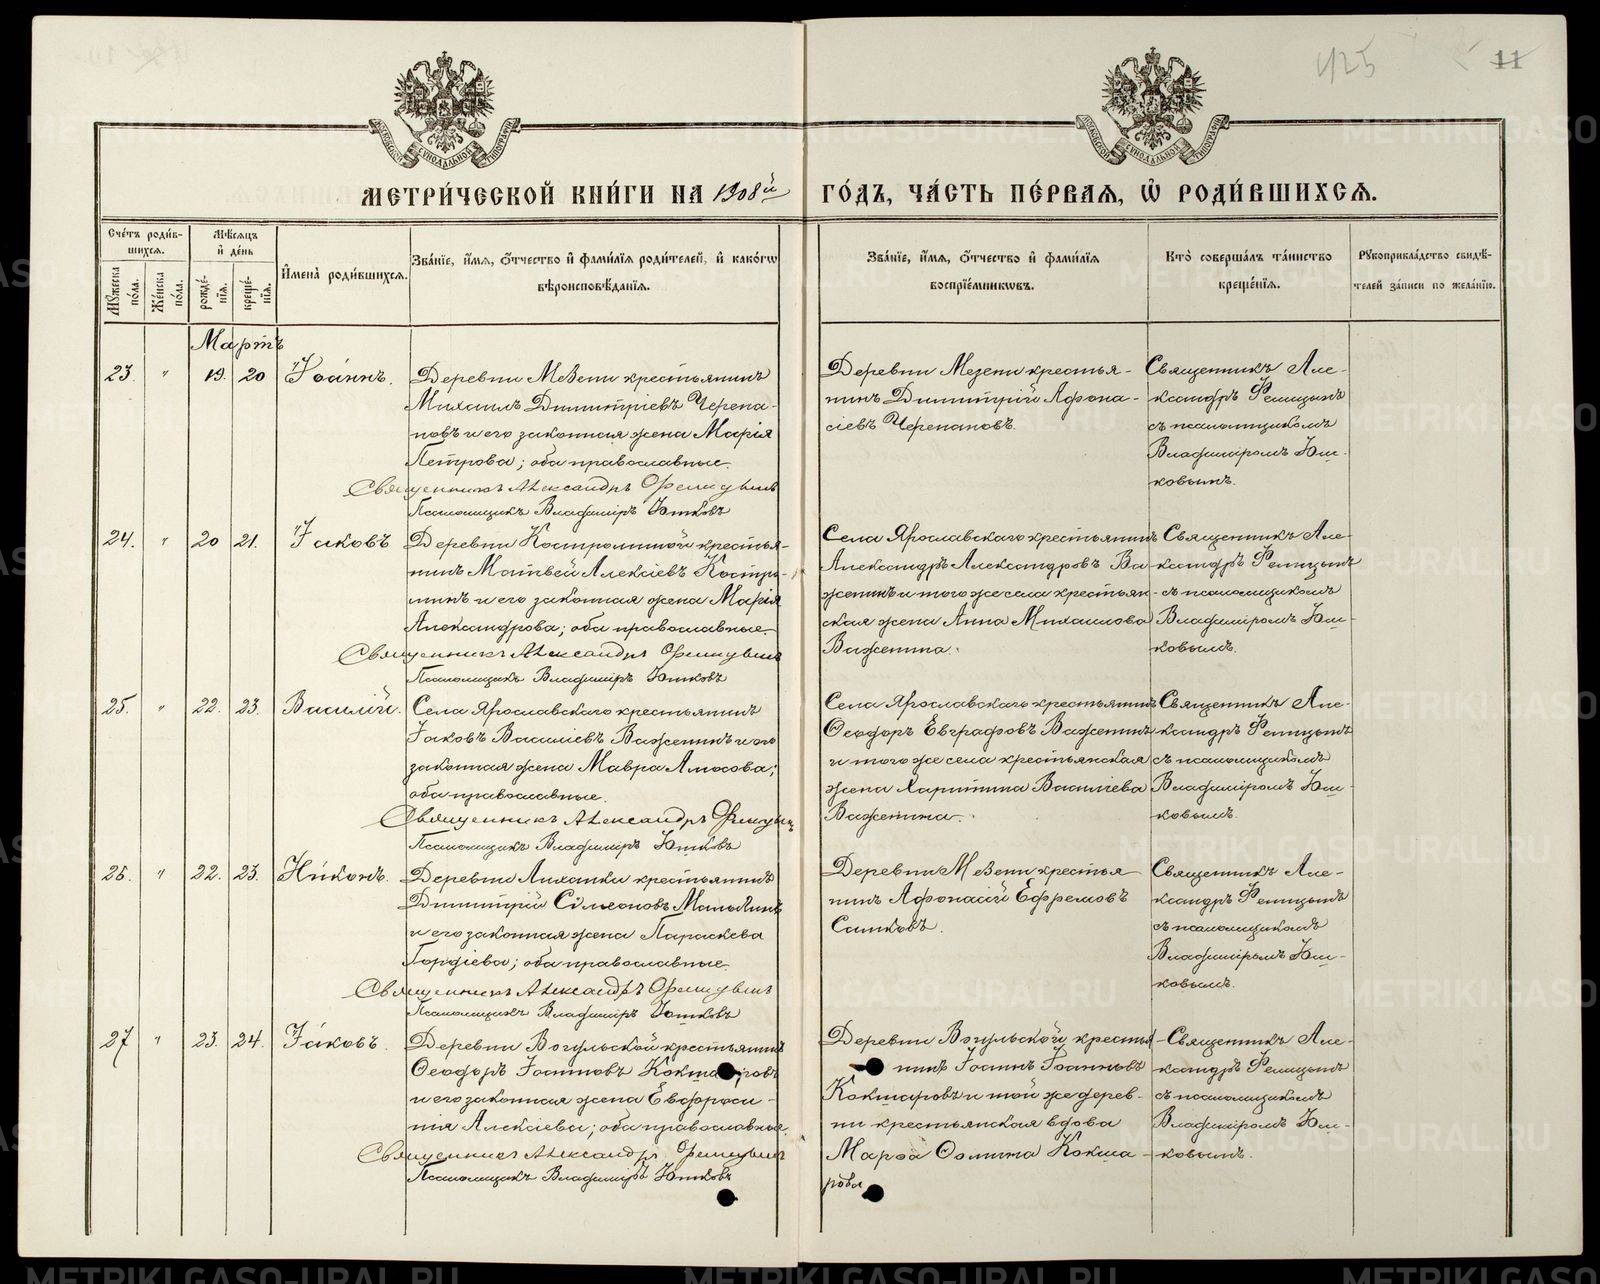 425
11
МЕТРИ́ЧЕСКОЙ КНИ́ГИ НА 1908й ГО́ДЪ, ЧА́СТЬ ПЕ́РВАЯ, Ѡ҆ РОДИ́ВШИХСЯ.
Сче́тъ роди́в-
шихся.
Мꙋ́жеска по́ла.
Же́нска по́ла.
Мѣ́сяцъ
и҆ де́нь
рожде́-
нїя.
креще́-
нїя.
И҆мена̀ роди́вшихся.
Зва́нїе, и҆́мя, ѻ҆́тчество и҆ фами́лїя роди́телей, и҆ како́гѡ
вѣроисповѣ́данїя.
Зва́нїе, и҆́мя, ѻ҆́тчество и҆ фами́лїя
воспрїе́мникѡвъ.
Кто̀ соверша́лъ та́инство
креще́нїя.
Рꙋкоприкла́дство свидѣ́-
телей за́писи по жела́нїю.
Мартъ
23. " 19. 20 Іоа́ннъ.
Деревни Мезени крестьянинъ
Михаилъ Димитріевъ Черепа-
новъ и его законная жена Марія
Петрова; оба православные.
Священникъ Александръ Феницынъ
Псаломщикъ Владиміръ Юшковъ
Деревни Мезени крестья-
нинъ Димитрій Афона-
сіевъ Черепановъ.
Священникъ Але-
ксандръ Феницынъ
съ псаломщикомъ
Владиміромъ Юш-
ковымъ.
24. " 20 21. Іаковъ
Деревни Костроминой крестья-
нинъ Матвей Алексіевъ Костро-
минъ и его законная жена Марія
Александрова; оба православные.
Священникъ Александръ Феницынъ
Псаломщикъ Владиміръ Юшковъ
Села Ярославскаго крестьянинъ
Александръ Александровъ Ва
женинъ и того же села крестьян-
ская жена Анна Михаилова
Важенина.
Священникъ Але-
ксандръ Феницынъ
съ псаломщикомъ
Владиміромъ Юш-
ковымъ.
25. " 22. 23. Василій.
Села Ярославскаго крестьянинъ
Іаковъ Василіевъ Важенинъ и его
законная жена Мавра Амосова;
оба православные.
Священникъ Александръ Феницынъ
Псаломщикъ Владиміръ Юшковъ
Села Ярославскаго крестьянинъ
Ѳеодоръ Евграфовъ Важенинъ
и того же села крестьянская
жена Харитина Василіева
Важенина.
Священникъ Але-
ксандръ Феницынъ
съ псаломщикомъ
Владиміромъ Юш-
ковымъ.
26. " 22. 23. Ни́конъ.
Деревни крестьянинъ
Димитрій Сѵмеоновъ
и его законная жена Параскева
Гордіева; оба православные.
Священникъ Александръ Феницынъ
Псаломщикъ Владиміръ Юшковъ
Деревни Мезени крестья
нинъ Афонасій Ефремовъ
Санковъ.
Священникъ Але-
ксандръ Феницынъ
съ псаломщикомъ
Владиміромъ Юш-
ковымъ.
27 " 23. 24. Іа́ковъ.
Деревни Вогульской крестьянинъ
Ѳеодоръ Іоанновъ Кокшаровъ
и его законная жена Евфроси-
нія Алексіева; оба православные.
Священникъ Александръ Феницынъ
Псаломщикъ Владиміръ Юшковъ
Деревни Вогульской крестья-
нинъ Іоаннъ Іоанновъ
Кокшаровъ и той же дерев-
ни крестьянская вдова
Марѳа Ѳомина Кокша-
рова
Священникъ Але-
ксандръ Феницынъ
съ псаломщикомъ
Владиміромъ Юш-
ковымъ.